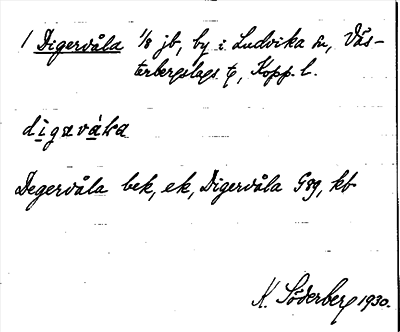 1 Digervåla 1/8 jb, by i Ludvika sn, Väs-
terbergslags tg, Kopp. l.
digərvåla
Degervåla bek, ek, Digervåla G89, kb
K. Söderberg 1930.